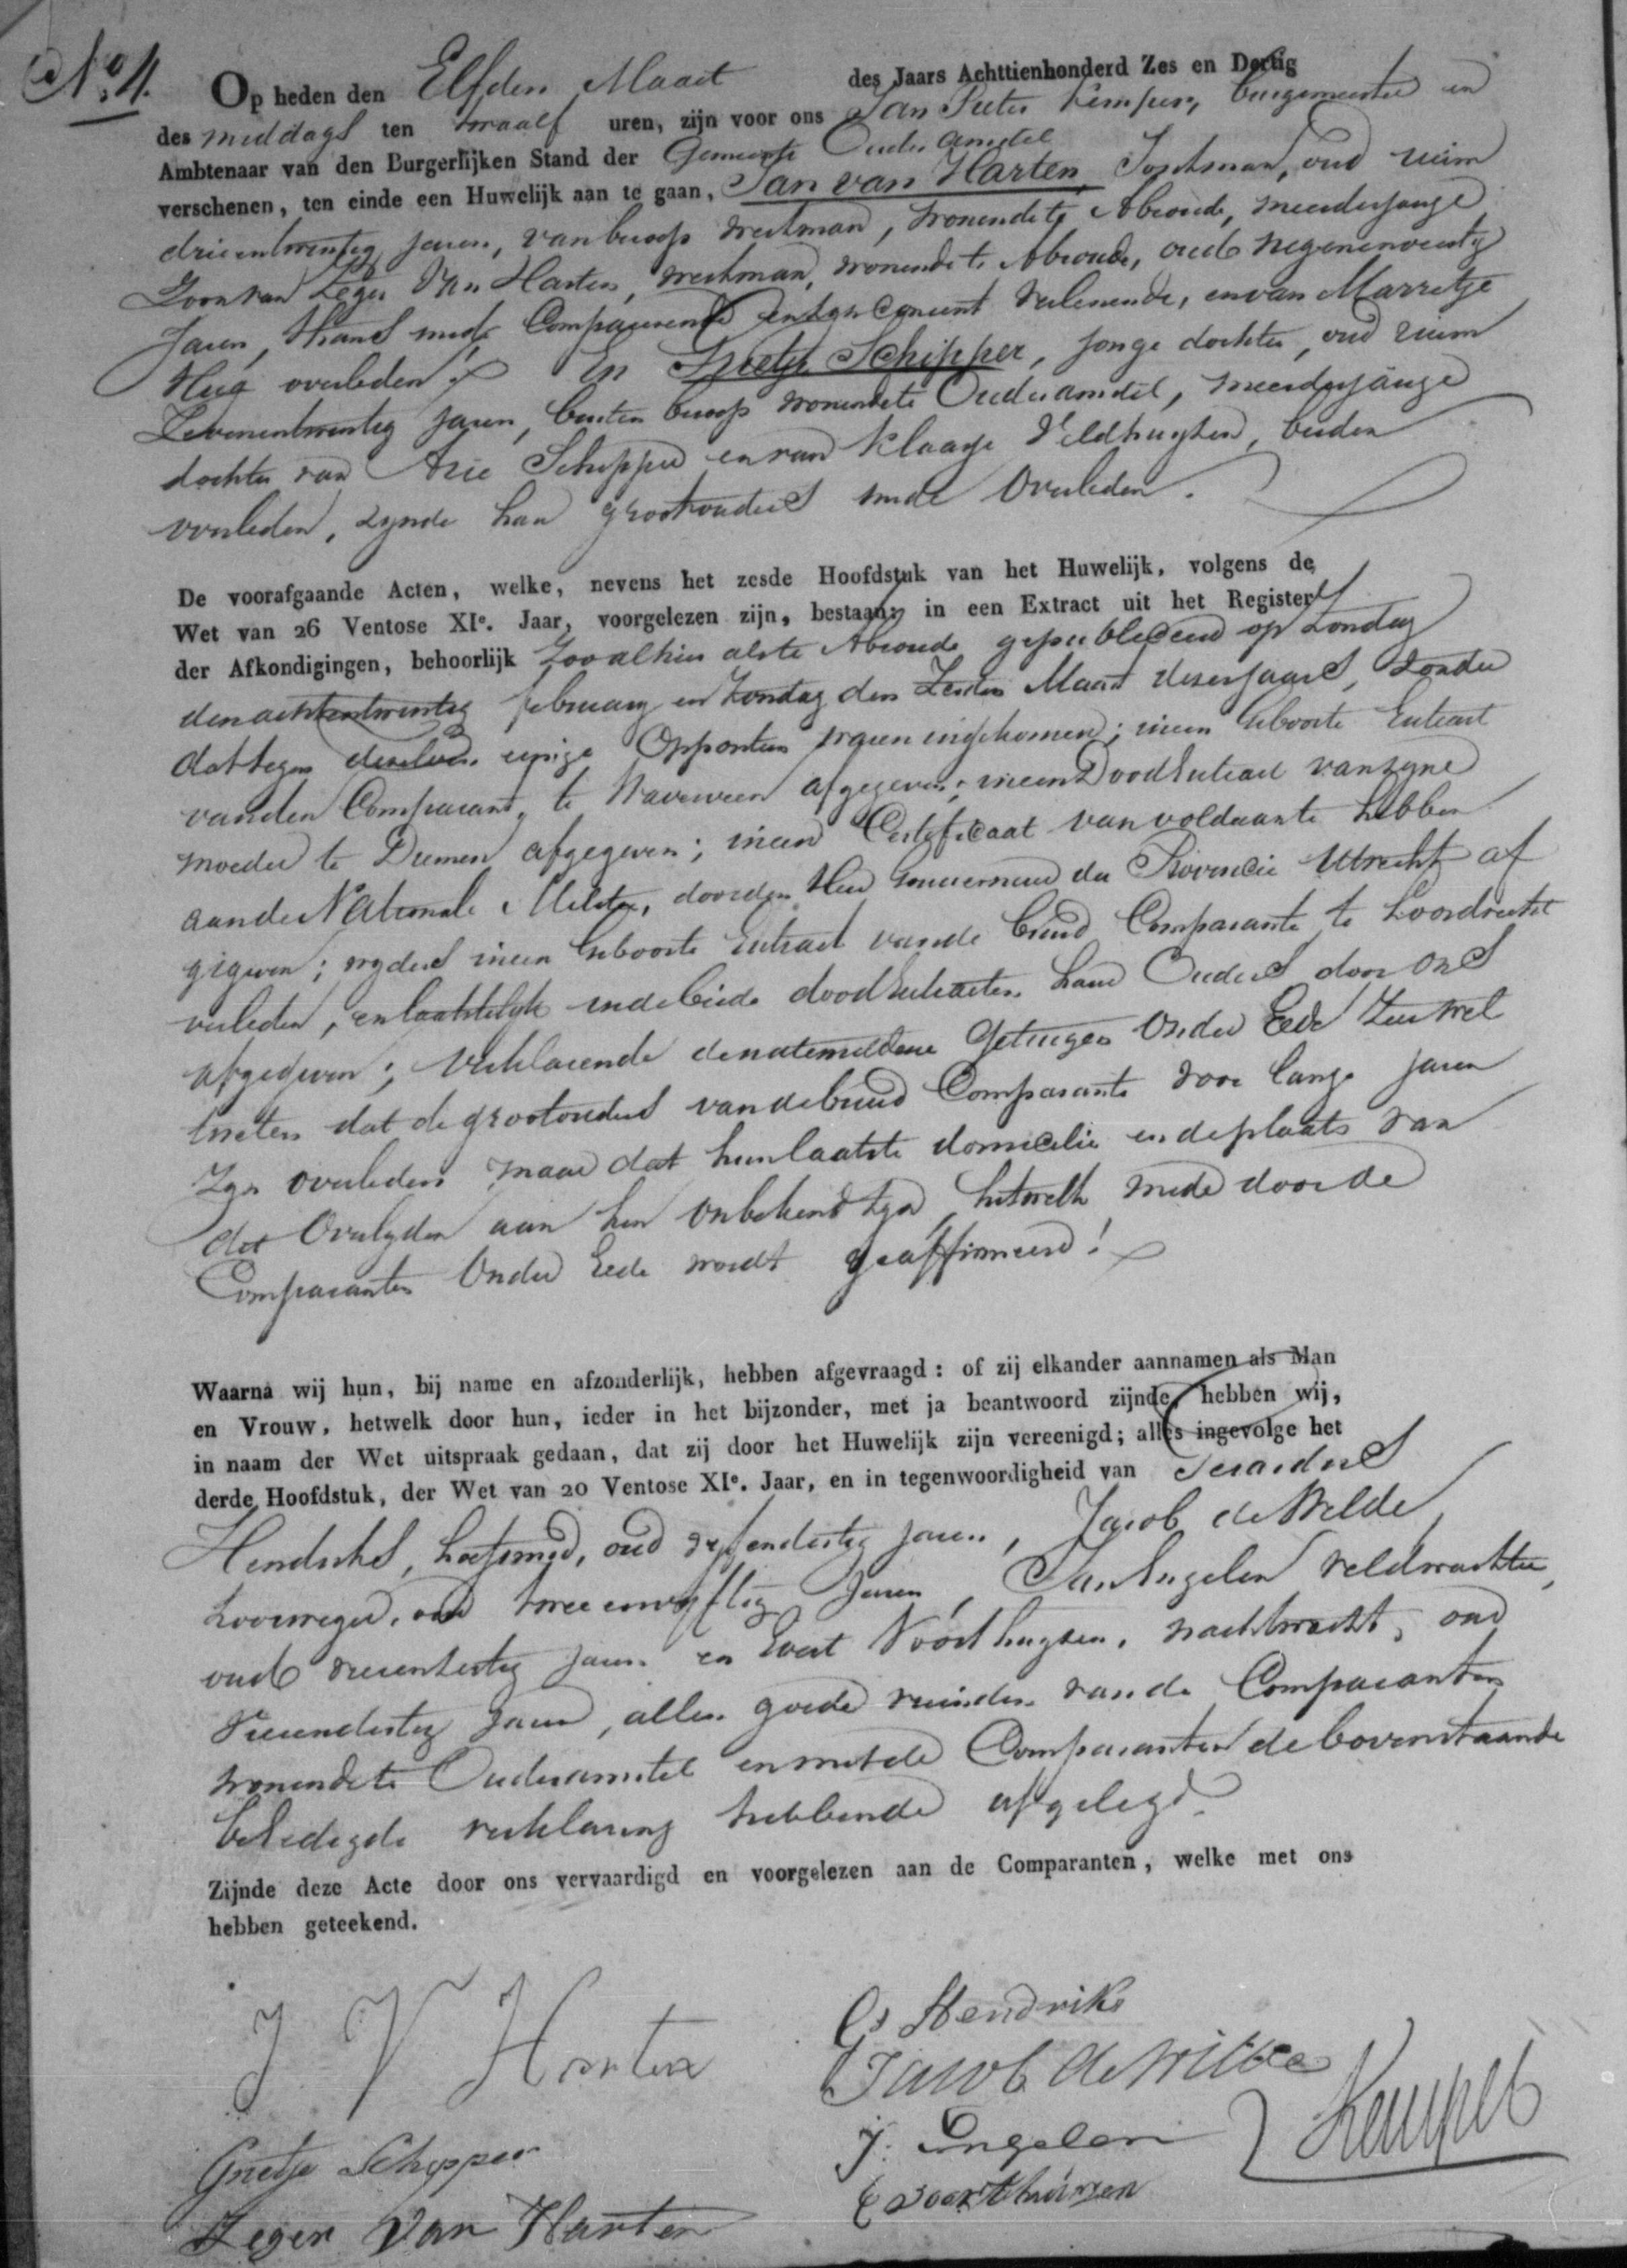 No. 4.
Op heden den Elfden Maart des Jaars Achttienhonderd Zes en Dertig
des middags ten twaalf uren, zijn voor ons Jan Pieter Kemper, burgemeester en
Ambtenaar van den Burgerlijken Stand der Gemeente Ouder Amstel
verschenen, ten einde een Huwelijk aan te gaan, Jan van Harten, Jonkman, oud ruim
drieentwintig jaren, van beroep werkman, wonende te Abcoude, meerderjarige
Zoon van Zeger Van Harten, werkman, wonende te Abcoude, oud
Jaren, thans mede Comparerende en zyn consent verleenende, en van Marretje
overleden. En Grietje Schipper, jonge dochter, oud ruim
Zevenentwintig jaren, buiten beroep wonende te Ouderamstel, meerderjarige
dochter van Arie Schipper en van Klaasje Veldhuyzen, beiden
overleden, zynde haar grootouders mede Overleden.
De voorafgaande Acten, welke, nevens het zesde Hoofdstuk van het Huwelijk, volgens de
Wet van 26 Ventose XIe. Jaar, voorgelezen zijn, bestaan: in een Extract uit het Register
der Afkondigingen, behoorlijk zoo alhier als te Abcoude gepubliceerd op Zondag
den achtentwintig february en Zondag den Zesden Maart dezes jaars, zonder
dat tegen dezelve eenige Oppositien waren ingekomen; in een Geboorte Extract
van den Comparant, te afgegeven; in een Dood Extract van zyne
moeder te Diemen afgegeven; in een Certificaat van voldaan te hebben
aan de Nationale Militie, door den Heer Gouverneur der Provincie Utrecht af
gegeven; wyders in een Geboorte Extract van de Bruid Comparante te Loosdrecht
verleden, en laatstelyk in de beide dood Extracten haar Ouders door ons
afgegeven; verklarende de natemeldene Getuigen Onder Eede zeer wel
te weten dat de grootouders van de bruid Comparante voor lange jaren
Zyn overleden maar dat hun laatste domicilie en de plaats van
het Overlyden aan hen Onbekend zyn, hetwelk mede door de
Comparanten Onder Eede wordt geaffirmeerd!
Waarna wij hun, bij name en afzonderlijk, hebben afgevraagd: of zij elkander aannamen als Man
en Vrouw, hetwelk door hun, ieder in het bijzonder, met ja beantwoord zijnde, hebben wij,
in naam der Wet uitspraak gedaan, dat zij door het Huwelijk zijn vereenigd; alles ingevolge het
derde Hoofdstuk, der Wet van 20 Ventose XIe. Jaar, en in tegenwoordigheid van Gerardus
Hendriks, hoefsmid, oud vyfendertig jaren, Jacob de Wilde,
oud tweeenvyftig Jaren, Jan Engelen veldwachter,
oud jaren en Evert Voorthuyzen, nachtwacht, oud
Vierendertig jaren, allen goede vrienden van de Comparanten
wonende te Ouderamstel en met de Comparanten de bovenstaande
beëedigde verklaring hebbende afgelegd.
Zijnde deze Acte door ons vervaardigd en voorgelezen aan de Comparanten, welke met ons
hebben geteekend.
J V Harten
Grietje Schipper
Zeger Van Harten
Gs Hendriks
Jacob de Wilde
J. Engelen
E Voorthuizen
Kemper